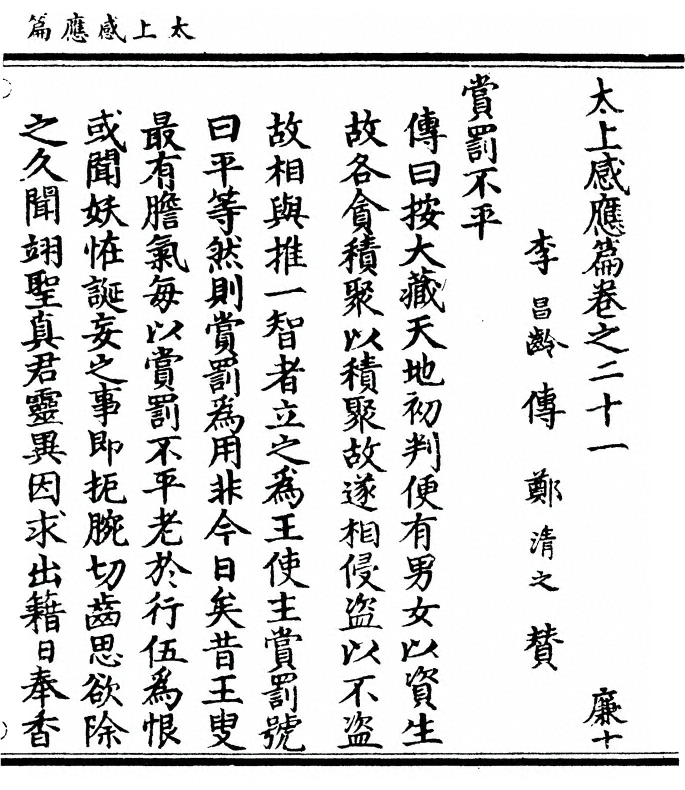 太上感應篇
太上感應篇卷之二十一 廉十
李昌齡傳 鄭清之贊
賞罰不平
傳曰按大藏天地初判便有男女以資生
故各貪積聚以積聚故遂相侵盜以不盜
故相與推一智者立之為王使主賞罰號
曰平等然則賞罰為用非今日矣昔王叟
最有膽氣每以賞罰不平老於行伍為恨
或聞妖恠誕妄之事即扼腕切齒思欲除
之久聞翊聖真君靈異因求出籍日奉香